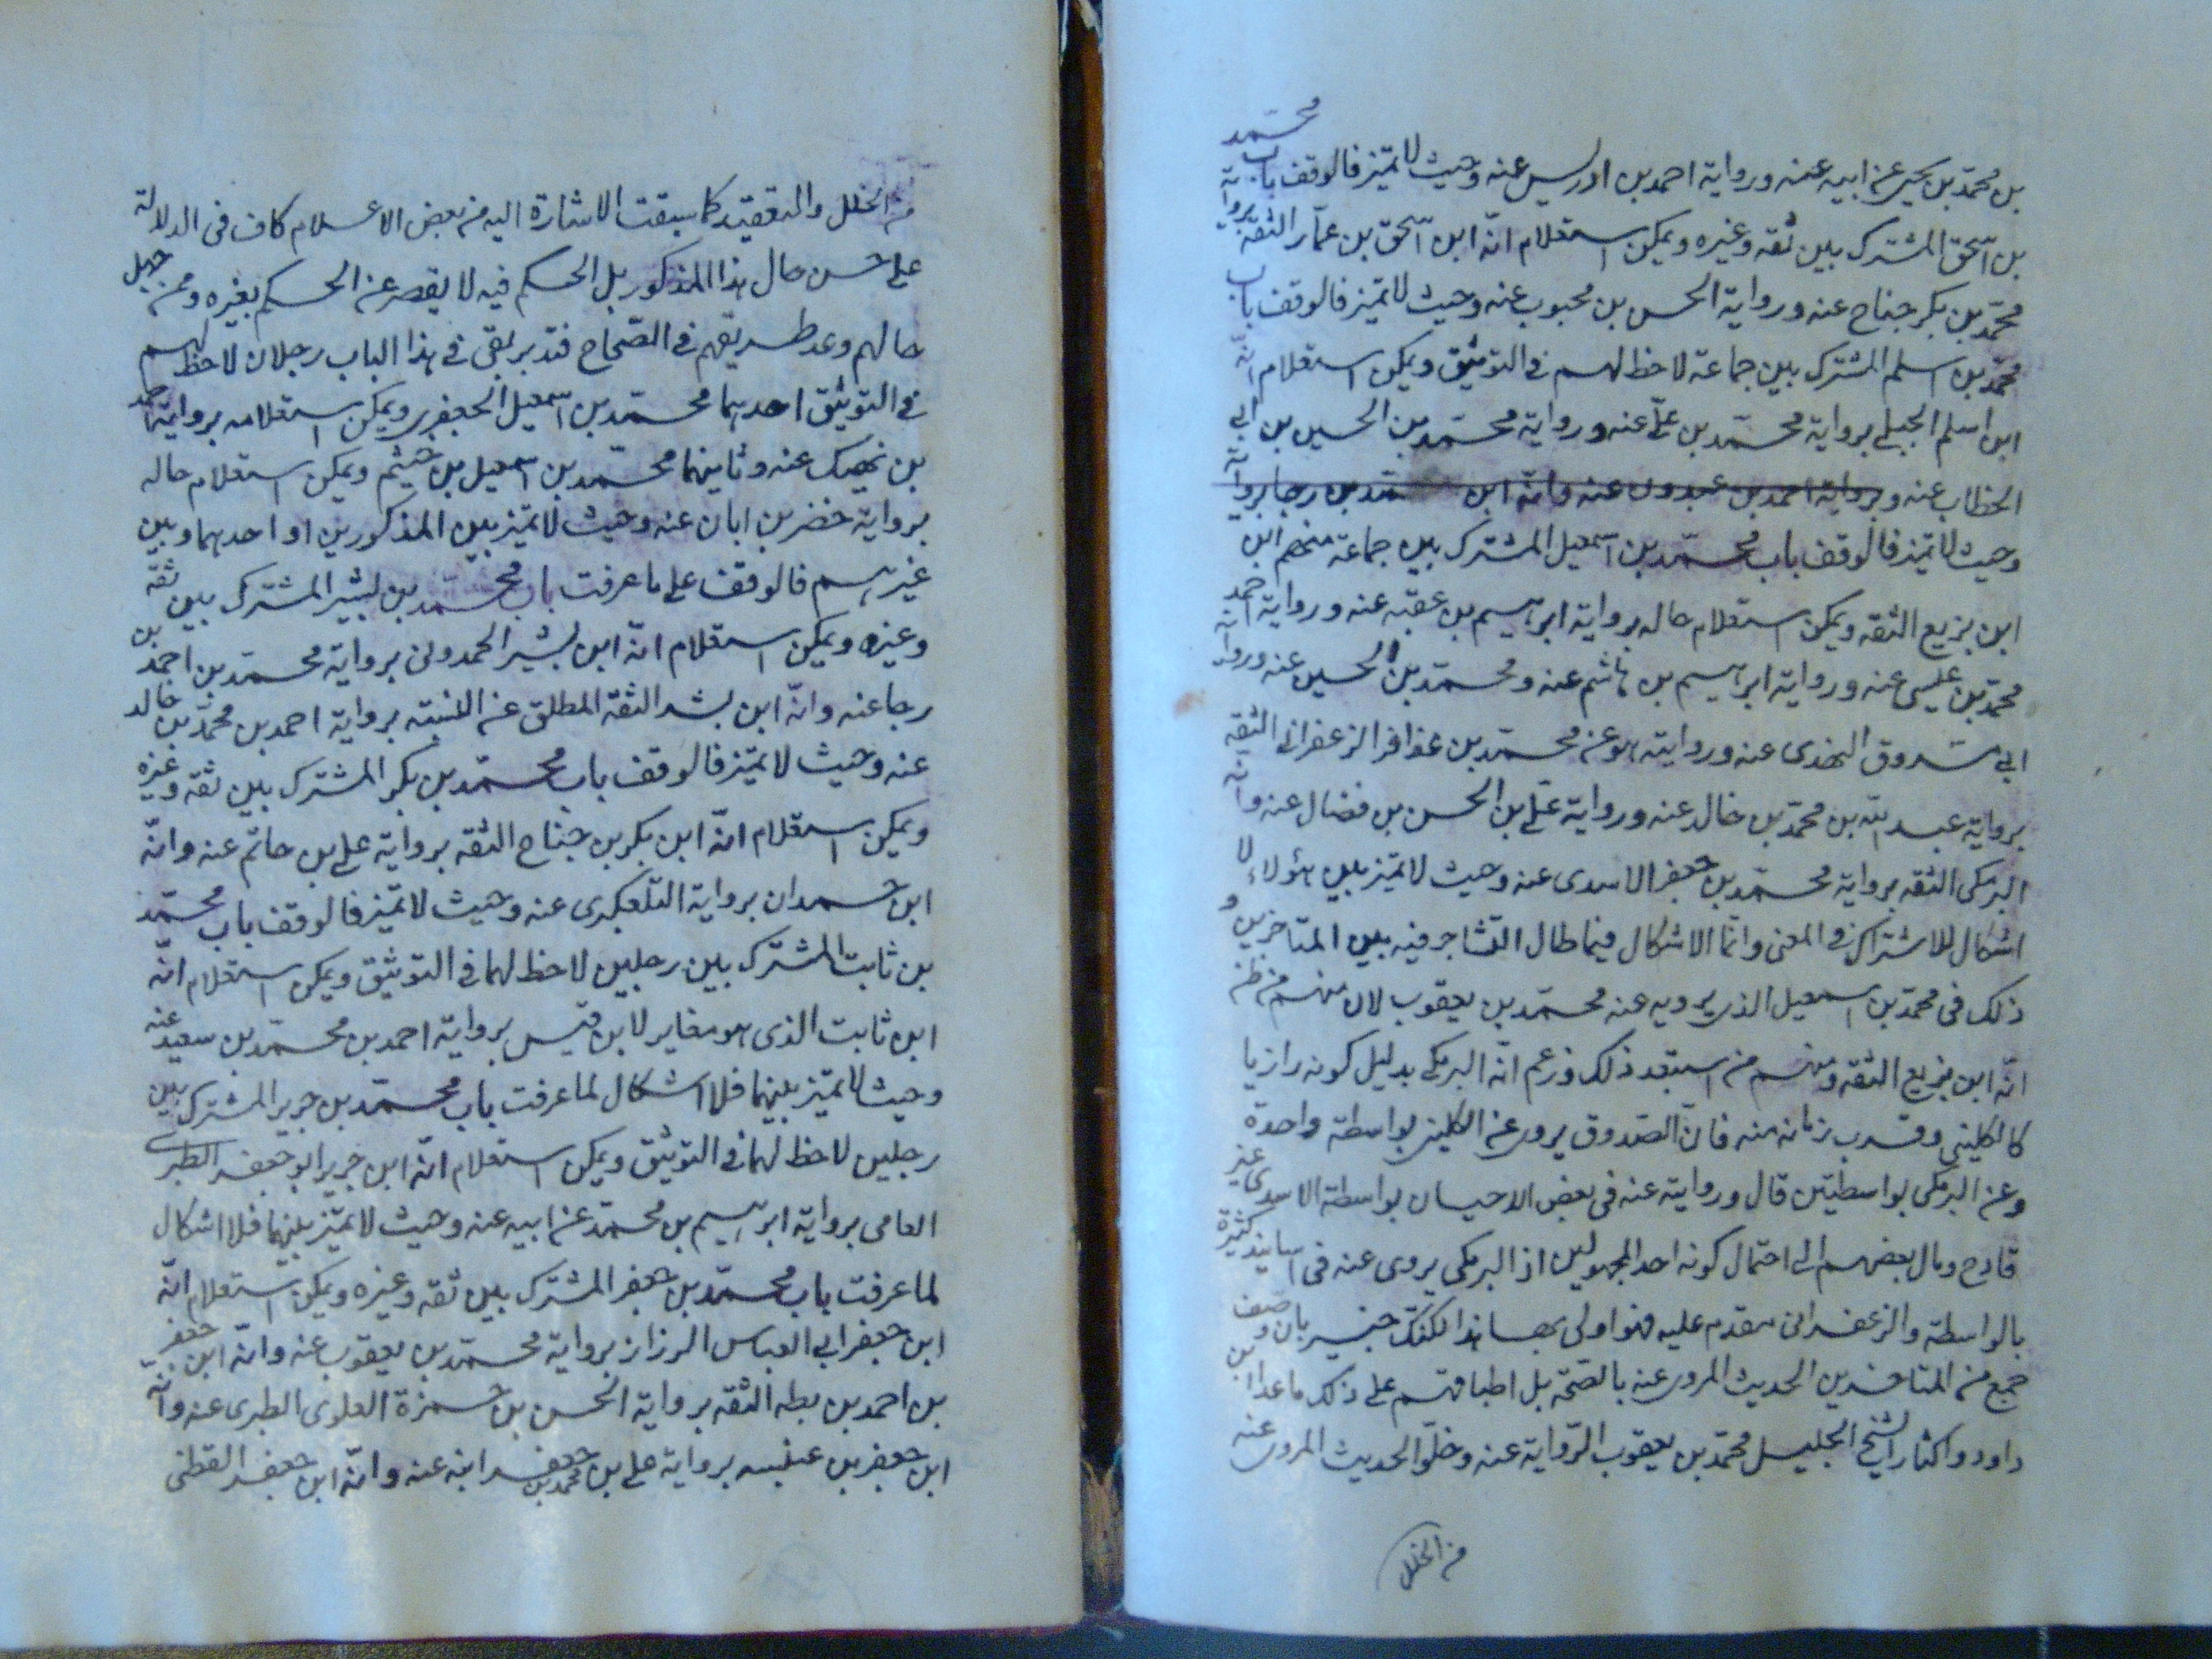 بن محمد بن يحيى عن ابيه عنه ورواية احمد بن ادريس عنه وحيث لا تميّز فالوقف باب محمّد
بن اسحق المشترك بين ثقه وغيره ويمكن استعلام انّه ابن اسحق بن عمار الثقه برواية
محمّد بن بكر جناح عنه ورواية الحسن بن محبوب عنه وحيث لا تميّز فالوقف باب
محمّد بن اسلم المشترك بين جماعة لا حظ لهم في التوثيق ويمكن استعلام انّه
ابن اسلم الجبلي برواية محمّد بن علي عنه ورواية محمّد بن الحسين بن ابي
الخطاب عنه وبرواية احمد بن عبدون عنه وانّه ابن بن رجا برواية
وحيث لا تميّز فالوقف باب محمّد بن اسمعيل المشترك بين جماعة منهم ابن
ابن بزيع الثقه ويمكن استعلام حاله برواية ابرهيم بن عقبه عنه ورواية احمد
محمّد بن عيسى عنه ورواية ابرهيم بن هاشم عنه ومحمّد بن الحسين عنه ورواية
ابي مسروق النهدى عنه وروايته هو عن محمّد بن عذافر الزعفراني الثقه
برواية عبد الله بن محمّد بن خالد عنه ورواية علي بن الحسن بن فضال عنه وانّه
البرمكى الثقه برواية محمّد بن جعفر الاسدى عنه وحيث لا تميّز بين هؤلاء لا
اشكال للاشتراك في المعنى وانما الاشكال فيما طال التشاجر فيه بين المتاخرين و
ذلك في محمّد بن اسمعيل الذي يرويه عنه محمّد بن يعقوب لان منهم من ظن
انّه ابن بزيع الثقه ومنهم من استبعد ذلك وزعم انّه البرمكي بدليل كونه رازيا
كالكليني وقرب زمانه منه فان الصدوق يروى عن الكليني بواسطة واحدة
وعن البرمكى بواسطتين قال وروايته عنه في بعض الاحيان بواسطة الاسدى غير
قادح ومال بعضهم الى احتمال كونه احد المجهولين اذ البرمكي يروى عنه في اسانيد كثيرة
بالواسطة والزعفرانى متقدم عليه فهو اولى بها هذا لكنك خبير بان وصف
جمع من المتاخرين الحديث المروى عنه بالصحة بل اطباقهم على ذلك ما عدا ابن
داود واكثار الشيخ الجليل محمّد بن يعقوب الرواية عنه وخلو الحديث المروى عنه
من الخلل
من الخلل والتعقيد كما سبقت الاشارة اليه من بعض الاعلام كاف في الدلالة
على حسن حال هذا المذكور بل الحكم فيه لا يقصر عن الحكم بغيره ومن جهل
حالهم وعد طريقهم في الصحاح فتدبر بقى في هذا الباب رجلان لا حظ لهم
في التوثيق احدهما محمّد بن اسمعيل الجعفرى ويمكن استعلامه برواية احمد
بن نهيك عنه وثانيهما محمّد بن اسمعيل بن خيثم ويمكن استعلام حاله
برواية خضر بن ابان عنه وحيث لا تميّز بين المذكورين او احدهما وبين
غيرهم فالوقف على ما عرفت باب محمّد بن بشير المشترك بين ثقه
وغيره ويمكن استعلام انّه ابن بشير الحمدونى برواية محمّد بن احمد بن
رجا عنه وانّه ابن بشير الثقه المطلق عن النسبته برواية احمد بن محمّد بن خالد
عنه وحيث لا تميّز فالوقف باب محمّد بن بكر المشترك بين ثقه وغيره
ويمكن استعلام انّه ابن بكر بن جناح الثقه برواية علي بن حاتم عنه وانّه
ابن حمدان برواية التلعكبرى عنه وحيث لا تميّز فالوقف باب محمّد
بن ثابت المشترك بين رجلين لا حظ لهما في التوثيق ويمكن استعلام انّه
ابن ثابت الذى هو مغاير لابن قيس برواية احمد بن محمّد بن سعيد عنه
وحيث لا تميّز بينهما فلا اشكال لما عرفت باب محمّد بن جرير المشترك بين
رجلين لا حظ لهما في التوثيق ويمكن استعلام انّه ابن جرير ابو جعفر الطبرى
العامى برواية ابرهيم بن محمّد عن ابيه عنه وحيث لا تميّز بينهما فلا اشكال
لما عرفت باب محمّد بن جعفر المشترك بين ثقه وغيره ويمكن استعلام انّه
ابن جعفر ابي العباس الرزاز برواية محمّد بن يعقوب عنه وانّه ابن جعفر
بن احمد بن بطه الثقه برواية الحسن بن حمزة العلوى الطبرى عنه وانّه
ابن جعفر بن عنبسه برواية علي بن محمد بن جعفر ابنه عنه وانّه ابن جعفر القطنى